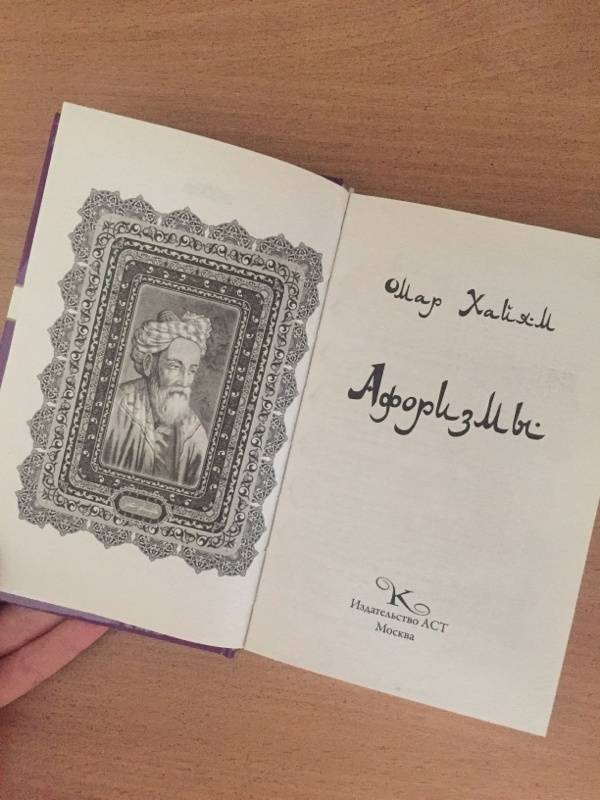 Омар Хайям
Афоризмы
К
Издательство АСТ
Москва